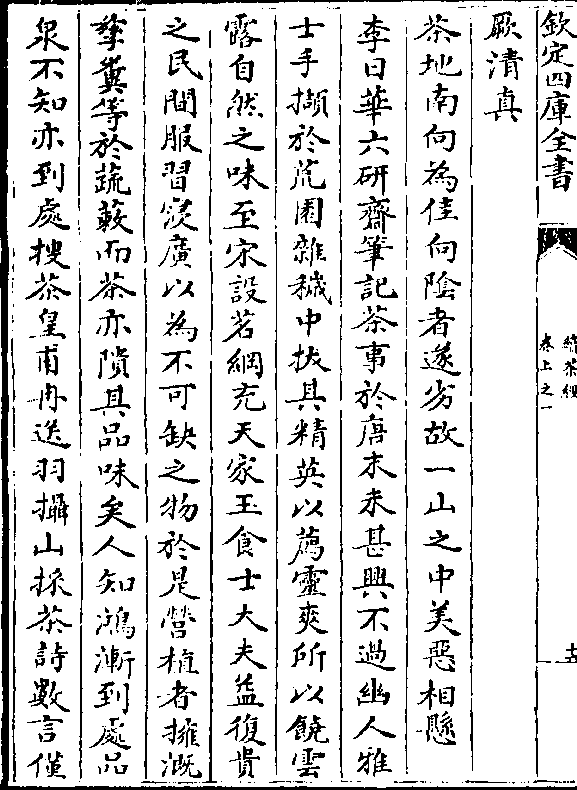 欽定四庫全書
續茶經
卷上之一
十五
厥清真
茶地南向為佳向陰者遂劣故一山之中美惡相懸
李日華六研齋筆記茶事於唐末未甚興不過幽人雅
士手擷於荒園雜穢中拔其精英以薦靈爽所以饒雲
露自然之味至宋設茗綱充天家玉食士大夫益復貴
之民間服習寖廣以為不可缺之物於是營植者擁溉
孳糞等於蔬蔌而茶亦隤其品味矣人知鴻漸到處品
泉不知亦到處搜茶皇甫冉送羽攝山採茶詩數言僅